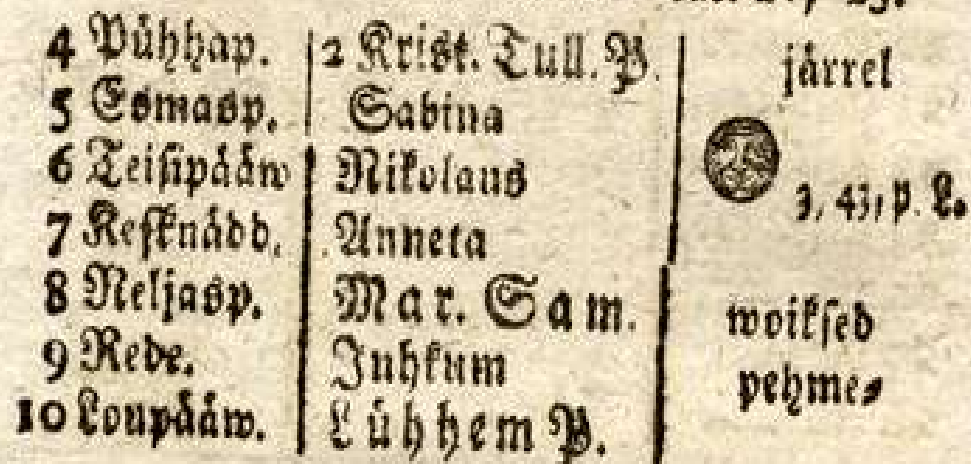 4 Pühhap. 2 Krist. Tull. P. järrel
5 Esmasp. Sabina
6 Teisipääw Nikolaus
7 Keſknädd. Anneta 3, 43, p. L.
8 Neljasp. Mar. Sam. woikſed
9 Rede. Juhkum pehme⸗
10 Loupääw. Lühhem P.